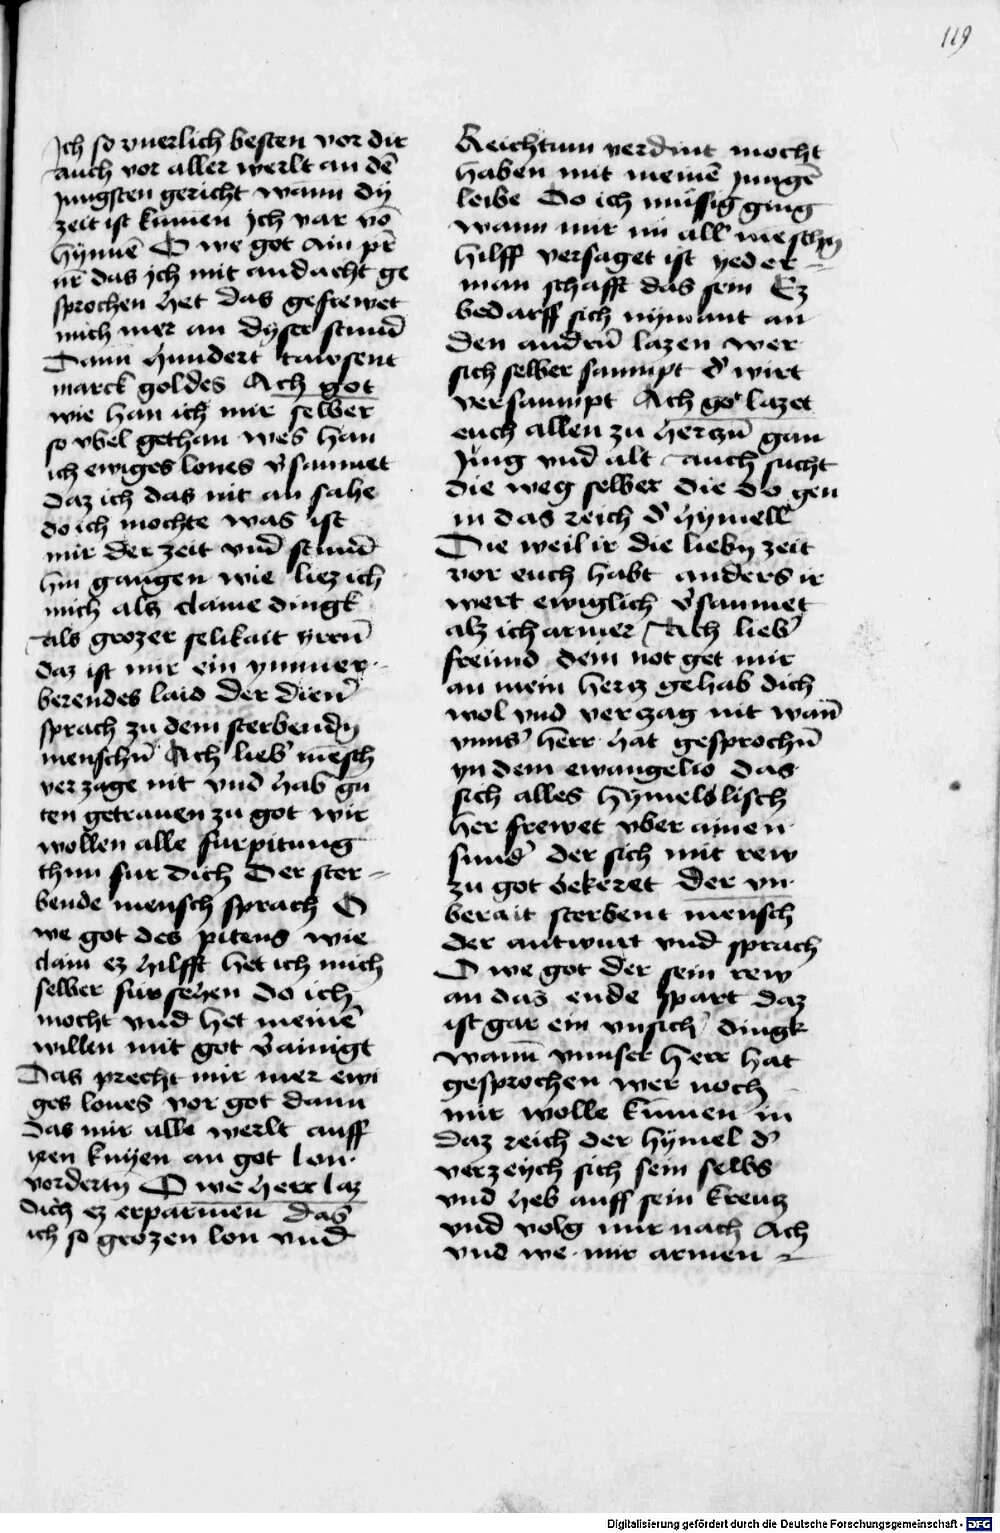 119
Ich so vnerlich besten vor dir
auch vor aller werlt an dē
jungsten gericht wann dy
zeit ist kumen Ich var vō
hÿnnē O we got ain pr̄
nr̄ das jch mit andacht ge
sprochen het das gefrewet
mich mer an dyser stund
Dann hundert tawsent
marck goldes Ach got
wie han ich mir selber
so vbel gethan wes han
ich ewiges lones v̄saumet
daz ich das nit an sahe
do ich mochte was ist
mir der zeit vnd stund
hin gangen wie liez ich
mich als claine dingk
als grozer selikait yrrn̄
daz ist mir ein ymmer-
werendes laid Der dien̄
sprach zu dem sterbendn
menschn̄ Ach lieb' mēsch
verzage nit vnd hab gu
ten getrauen zu got wir
wollen alle furpitung
thun fur dich Der ster-
bende mensch sprach O
we got des pitens wie
clain ez hilfft het ich mich
selber fursehen do ich
mocht vnd het meinē
willen mit got v̄ainigt
Das precht mir mer ewi
ges lones vor got dann
das mir alle werlt auff
iren knyen an got lon
vordertn O we herr laz
dich ez erparmen das
ich so grozen lon vnd
Reichtum verdint mocht
haben mit meinē jungē
leibe Do ich mussig ging
wann mir nu all' meschn
hilff versaget ist yeder-
man schafft das sein Ez
bedarff sich nymant an
den andrn̄ lazen wer
sich selber saumpt d' wirt
versaumpt Ach got lazet
euch allen zu hertzn̄ gan
Jung vnd alt auch sucht
die weg selber die do gen
in das reich d' hymell
Die weil ir die liebn zeit
vor euch habt anders ir
wert ewiglich v̄saumet
alz ich armer Ach lieb'
freund dein not get mir
an mein hertz gehab dich
wol vnd verzag nit wan̄
vnns' herr hat gesprochn̄
yn dem ewangelio das
sich alles hymelslisch
her frewet vber ainen
sund' der sich mit rew
zu got bekeret Der vn
berait sterbent mensch
der antwurt vnd sprach
O we got der sein rew
an das ende spart daz
ist gar ein vnsich' dingk
wann vnnser herr hat
gesprochen wer noch
mir wolle kumen in
daz reich der hymel d'
verzeych sich sein selbs
vnd heb auff sein kreutz
vnd volg mir nach Ach
vnd we mir armen
Digitalisierung gefördert durch die Deutsche Forschungsgemeinschaft - DFG